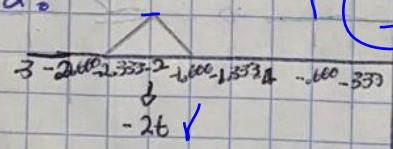 a.
-3 -2.666 -2.333 -2 -1.666 -1.333 -1 -.666 -.333
-2t